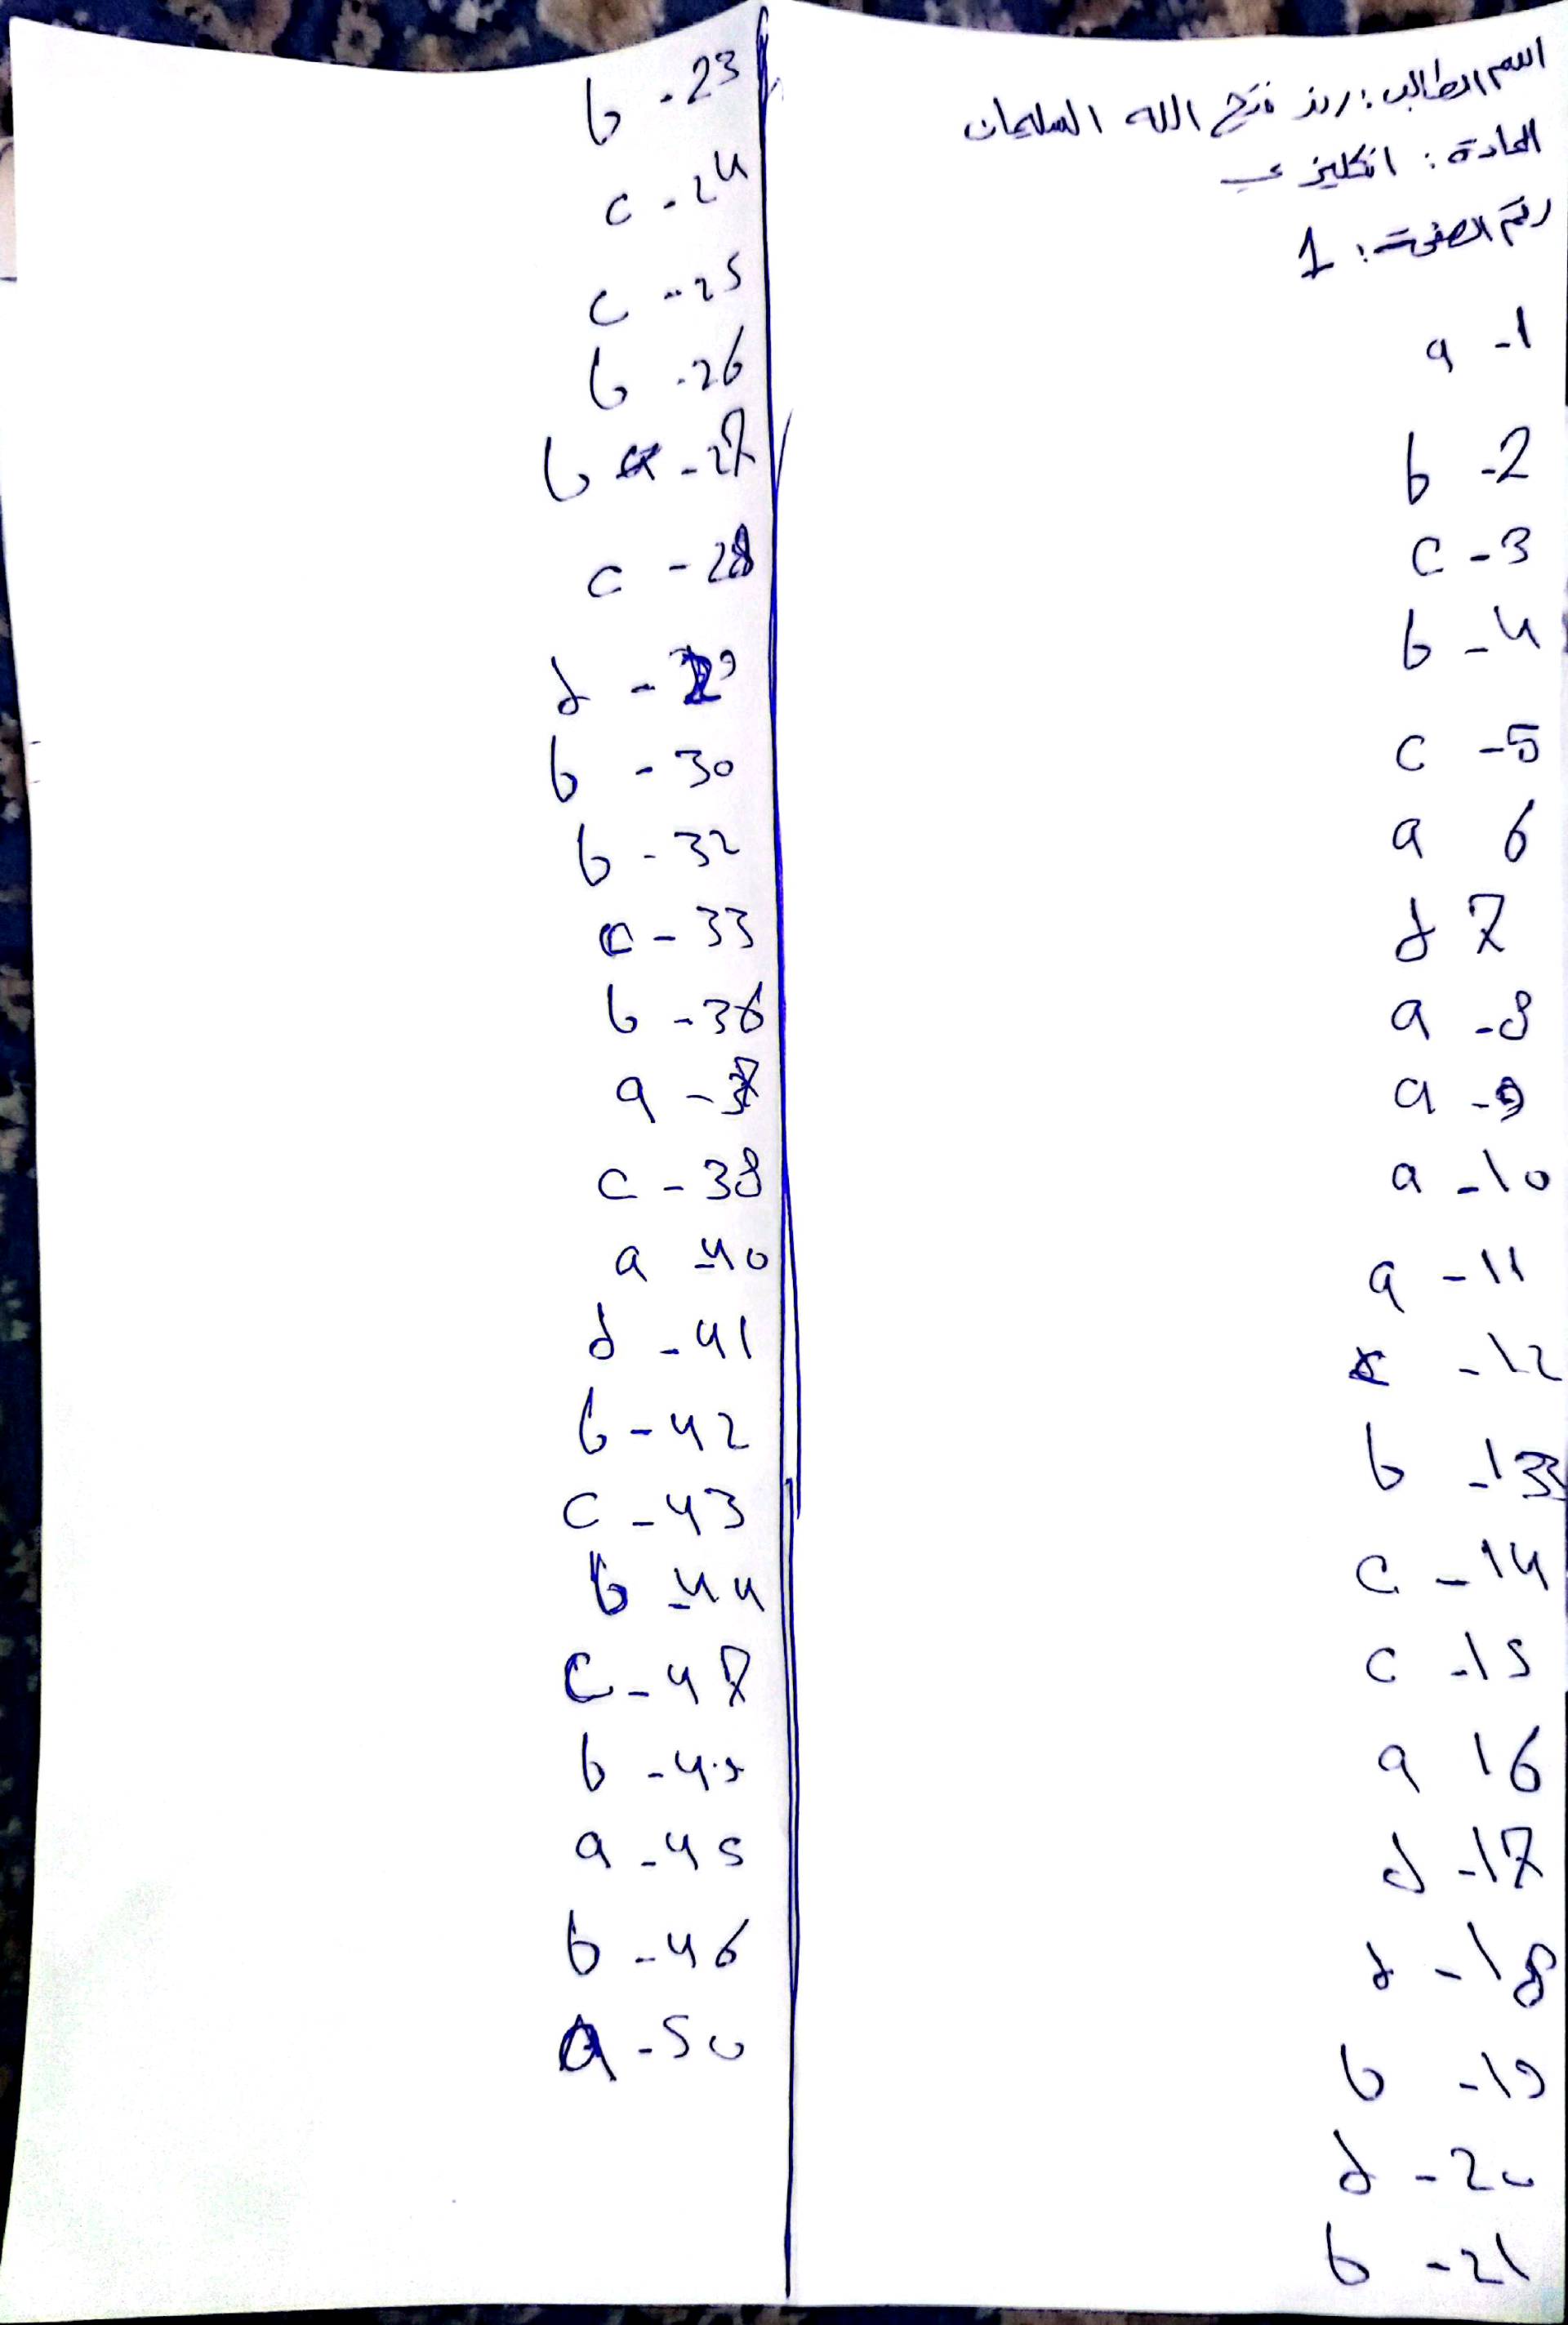 اسم الطالب: رند فتح الله السليمان
المادة: انكليزي
رقم الصفحة: 1
a -1
b -2
c -3
b -4
c -5
a 6
d 7
a -8
a -9
a -10
a -11
-12
b -13
c -14
c -15
a 16
d -17
d -18
b -19
d -20
b -21
b -23
c -24
c -25
b -26
b -27
c -28
d -29
b -30
b -32
c -33
b -36
a -37
c -38
a -40
d -41
b -42
c -43
b -44
c -47
b
a -45
b -46
a -50